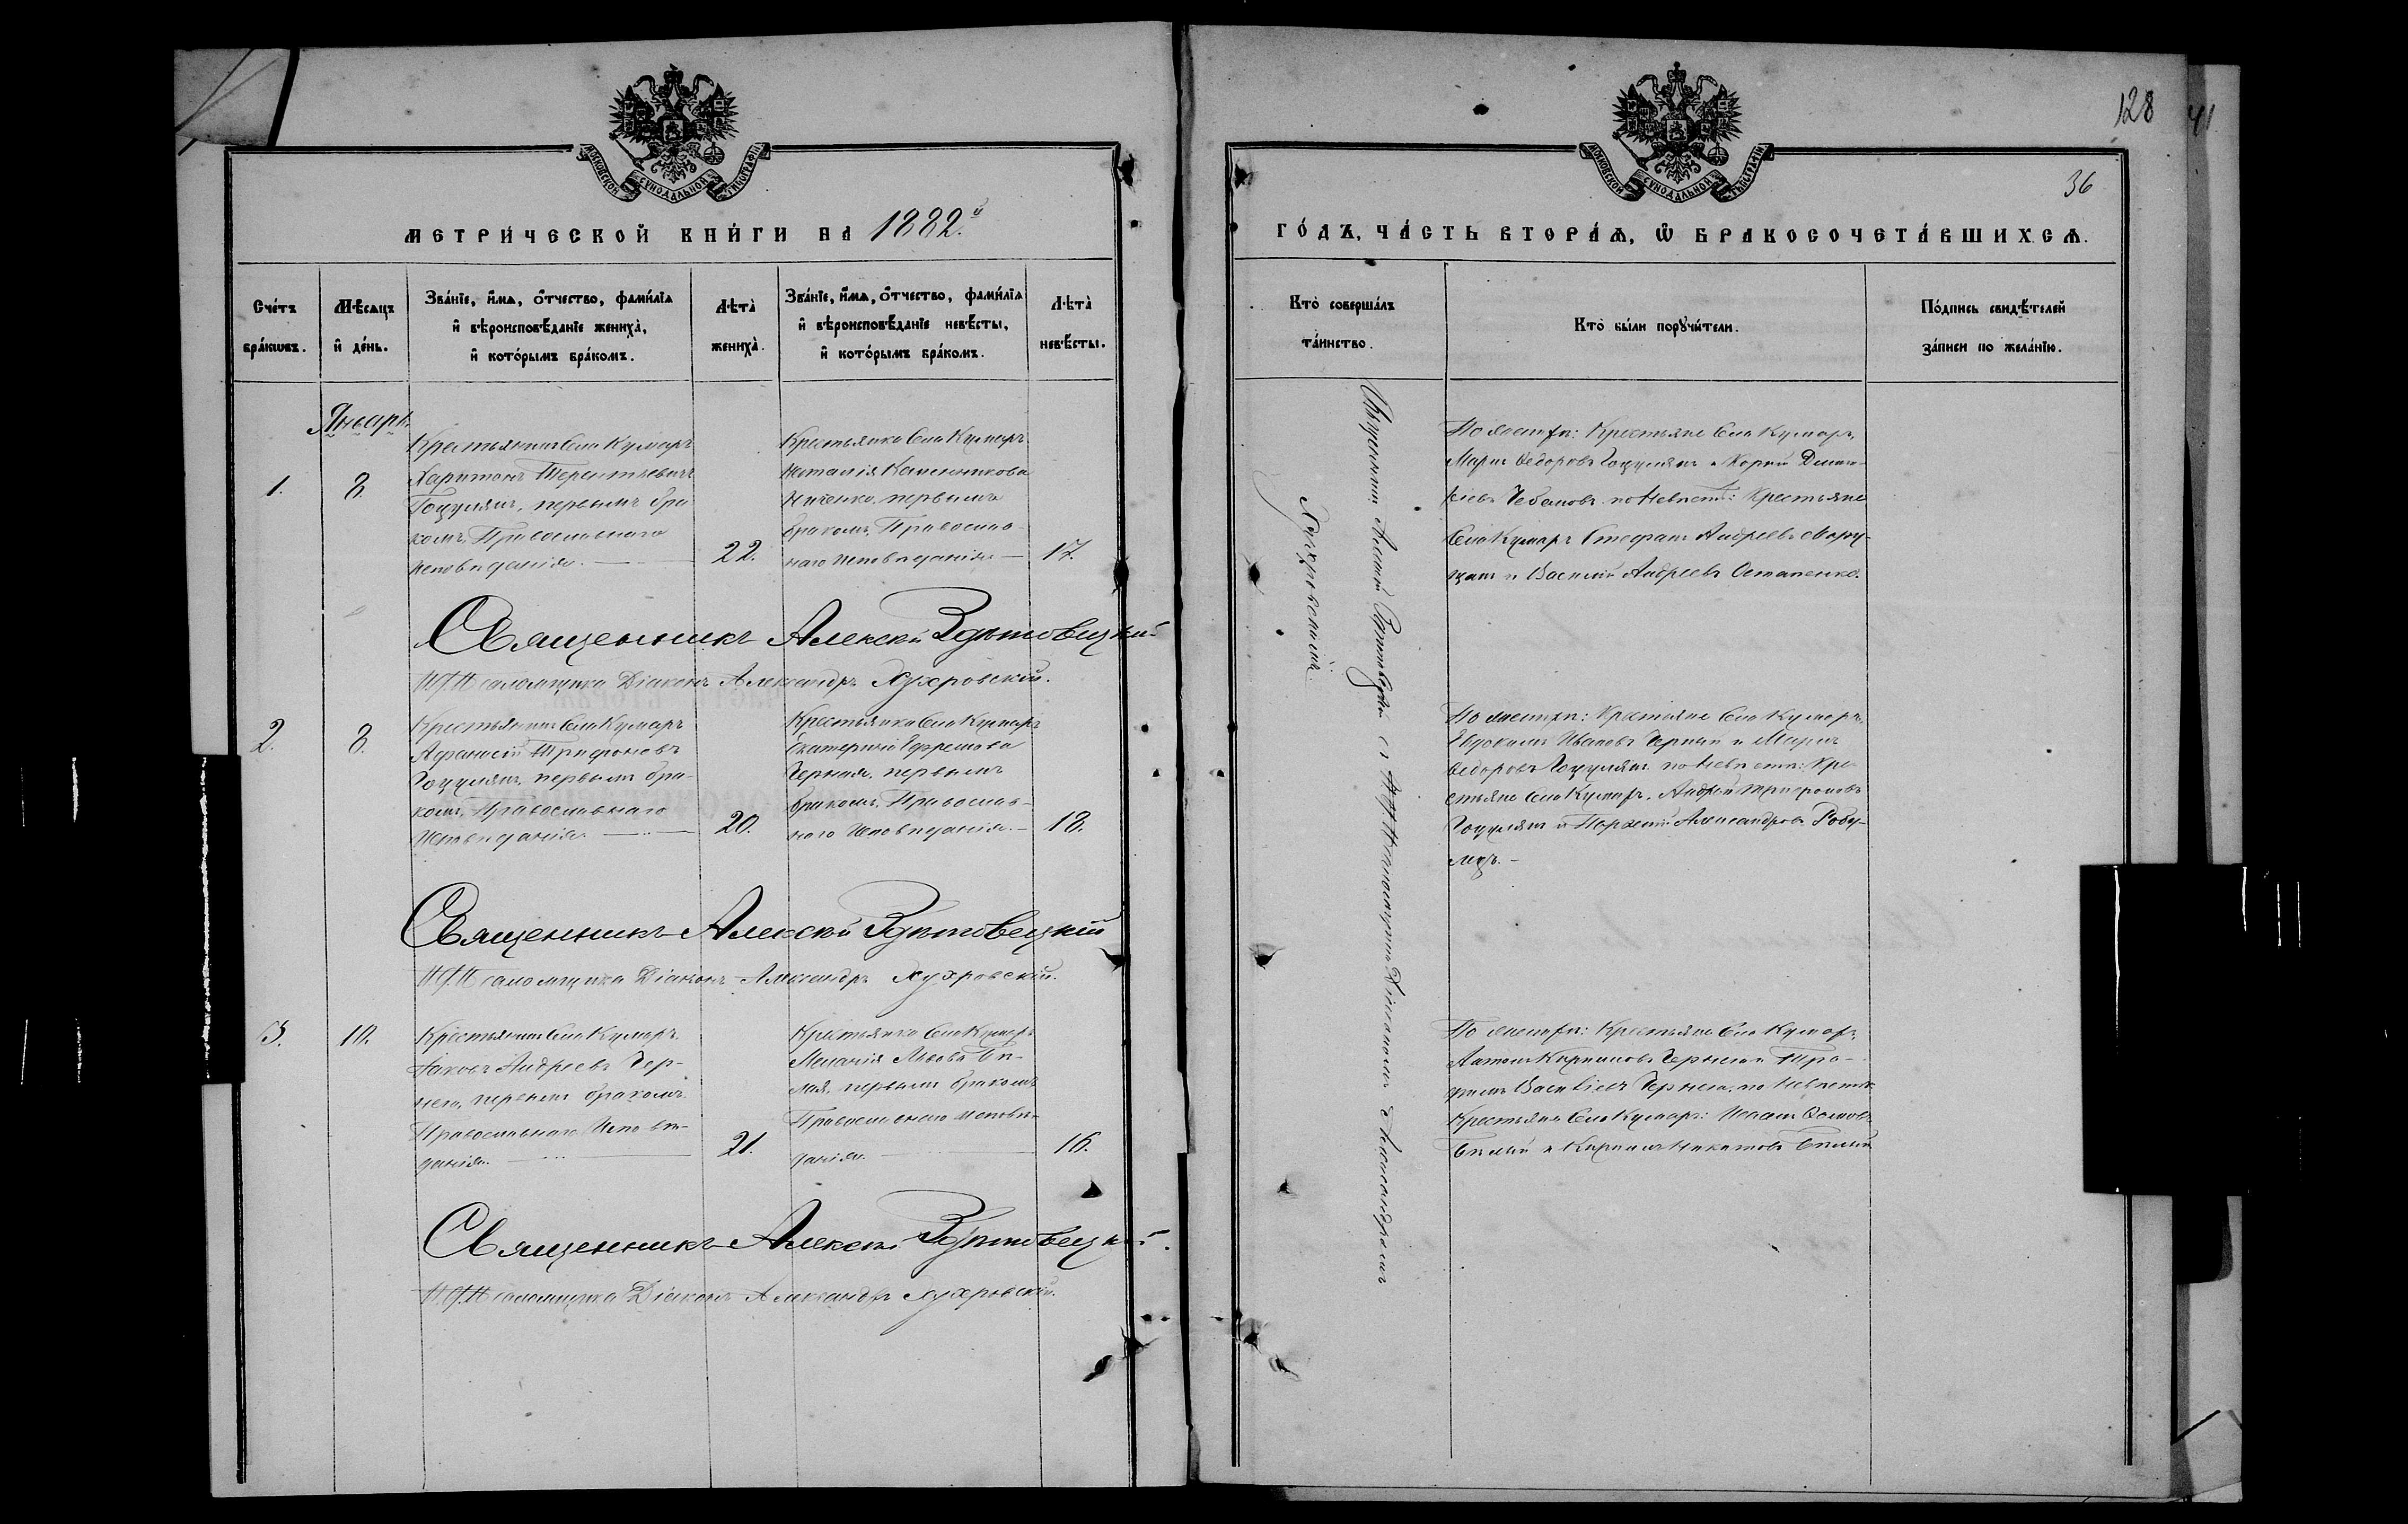 128
41
36
МОСКОВСКОЙ СУНОДАЛЬНОЙ ТИПОГРАФІИ
МЕТРИ́ЧЕСКОЙ КНИ́ГИ НА 1882й
Сче́тъ бра́кѡвъ.
Мѣ́сяцъ и҆ де́нь.
Зва́нїе, и҆́мѧ, ѻ҆́тчество, фами́лїѧ
и҆ вѣроисповѣ́данїе жениха̀,
и҆ кото́рымъ бра́комъ.
Лѣта̀ жениха̀.
Зва́нїе, и҆́мѧ, ѻ҆́тчество, фами́лїѧ
и҆ вѣроисповѣ́данїе невѣ́сты,
и҆ кото́рымъ бра́комъ.
Лѣта̀ невѣ́сты.
Январь
1.
8.
Крестьянинъ Села Кулмаръ
Харитонъ Терентьевичъ
Гоцулякъ, первымъ бра
комъ, Православнаго
исповѣданія.
22.
Крестьянка Села Кулмаръ
Наталія
первымъ
бракомъ, Православ-
наго исповѣданія
17.
Священникъ Алексѣй Здѣтовецкій
И. Д. Псаломщика Діаконъ Александръ Яухровскій.
2.
8.
Крестьянинъ Села Кулмаръ
Афанасій Трифоновъ
Гоцулякъ, первымъ бра-
комъ, Православнаго
Исповѣданія.
20.
Крестьянка Села Кулмаръ
Екатерина Ефремова
Черная, первымъ
бракомъ, Православ-
наго Исповѣданія.
18.
Священникъ Алексѣй Здѣтовецкій
И. Д. Псаломщика Діаконъ Александръ Яухровскій.
3.
10.
Крестьянинъ Села Кулмаръ
Яковъ Андреевъ Чер-
нега, первымъ бракомъ
Православнаго Исповѣ-
данія.
21.
Крестьянка Села Кулмаръ
Меланія Львова Бѣ-
лая, первымъ бракомъ
Православнаго исповѣ-
данія.
16.
Священникъ Алексѣй Здѣтовецкій
И. Д. Псаломщика Діаконъ Александръ Яухровскій.
ГО́ДЪ, ЧА́СТЬ ВТОРА́Ѧ, Ѽ БРАКОСОЧЕТА́ВШИХСѦ.
Кто̀ соверша́лъ
та́инство.
Кто̀ бы́ли порꙋчи́тели.
По́дпись свидѣ́телей
за́писи по жела́нїю.
Священникъ Алексѣй Здѣтовецкій съ И. Д. Псаломщика Діакономъ Александромъ
Яухровскимъ
По женихѣ: Крестьяне Села Кулмаръ,
Ѳедоровъ Гоцулякъ и
Чебановъ. по Невѣстѣ: Крестьяне
Села Кулмаръ Стефанъ Андреевъ
и Василій Андреевъ Остапенко.
По женихѣ: Крестьяне Села Кулмаръ,
Евдокимъ Ивановъ Черный и
Ѳедоровъ Гоцулякъ. по Невѣстѣ: Кре
стьяне Села Кулмаръ, Андрей Трифоновъ
Гоцулякъ и Александровъ
По женихѣ: Крестьяне Села Кулмаръ,
Антонъ Кириловъ Чернега и Тро-
фимъ Васильевъ Чернега, по Невѣстѣ
Крестьяне Села Кулмаръ:
Бѣлый и Кириллъ Бѣлый